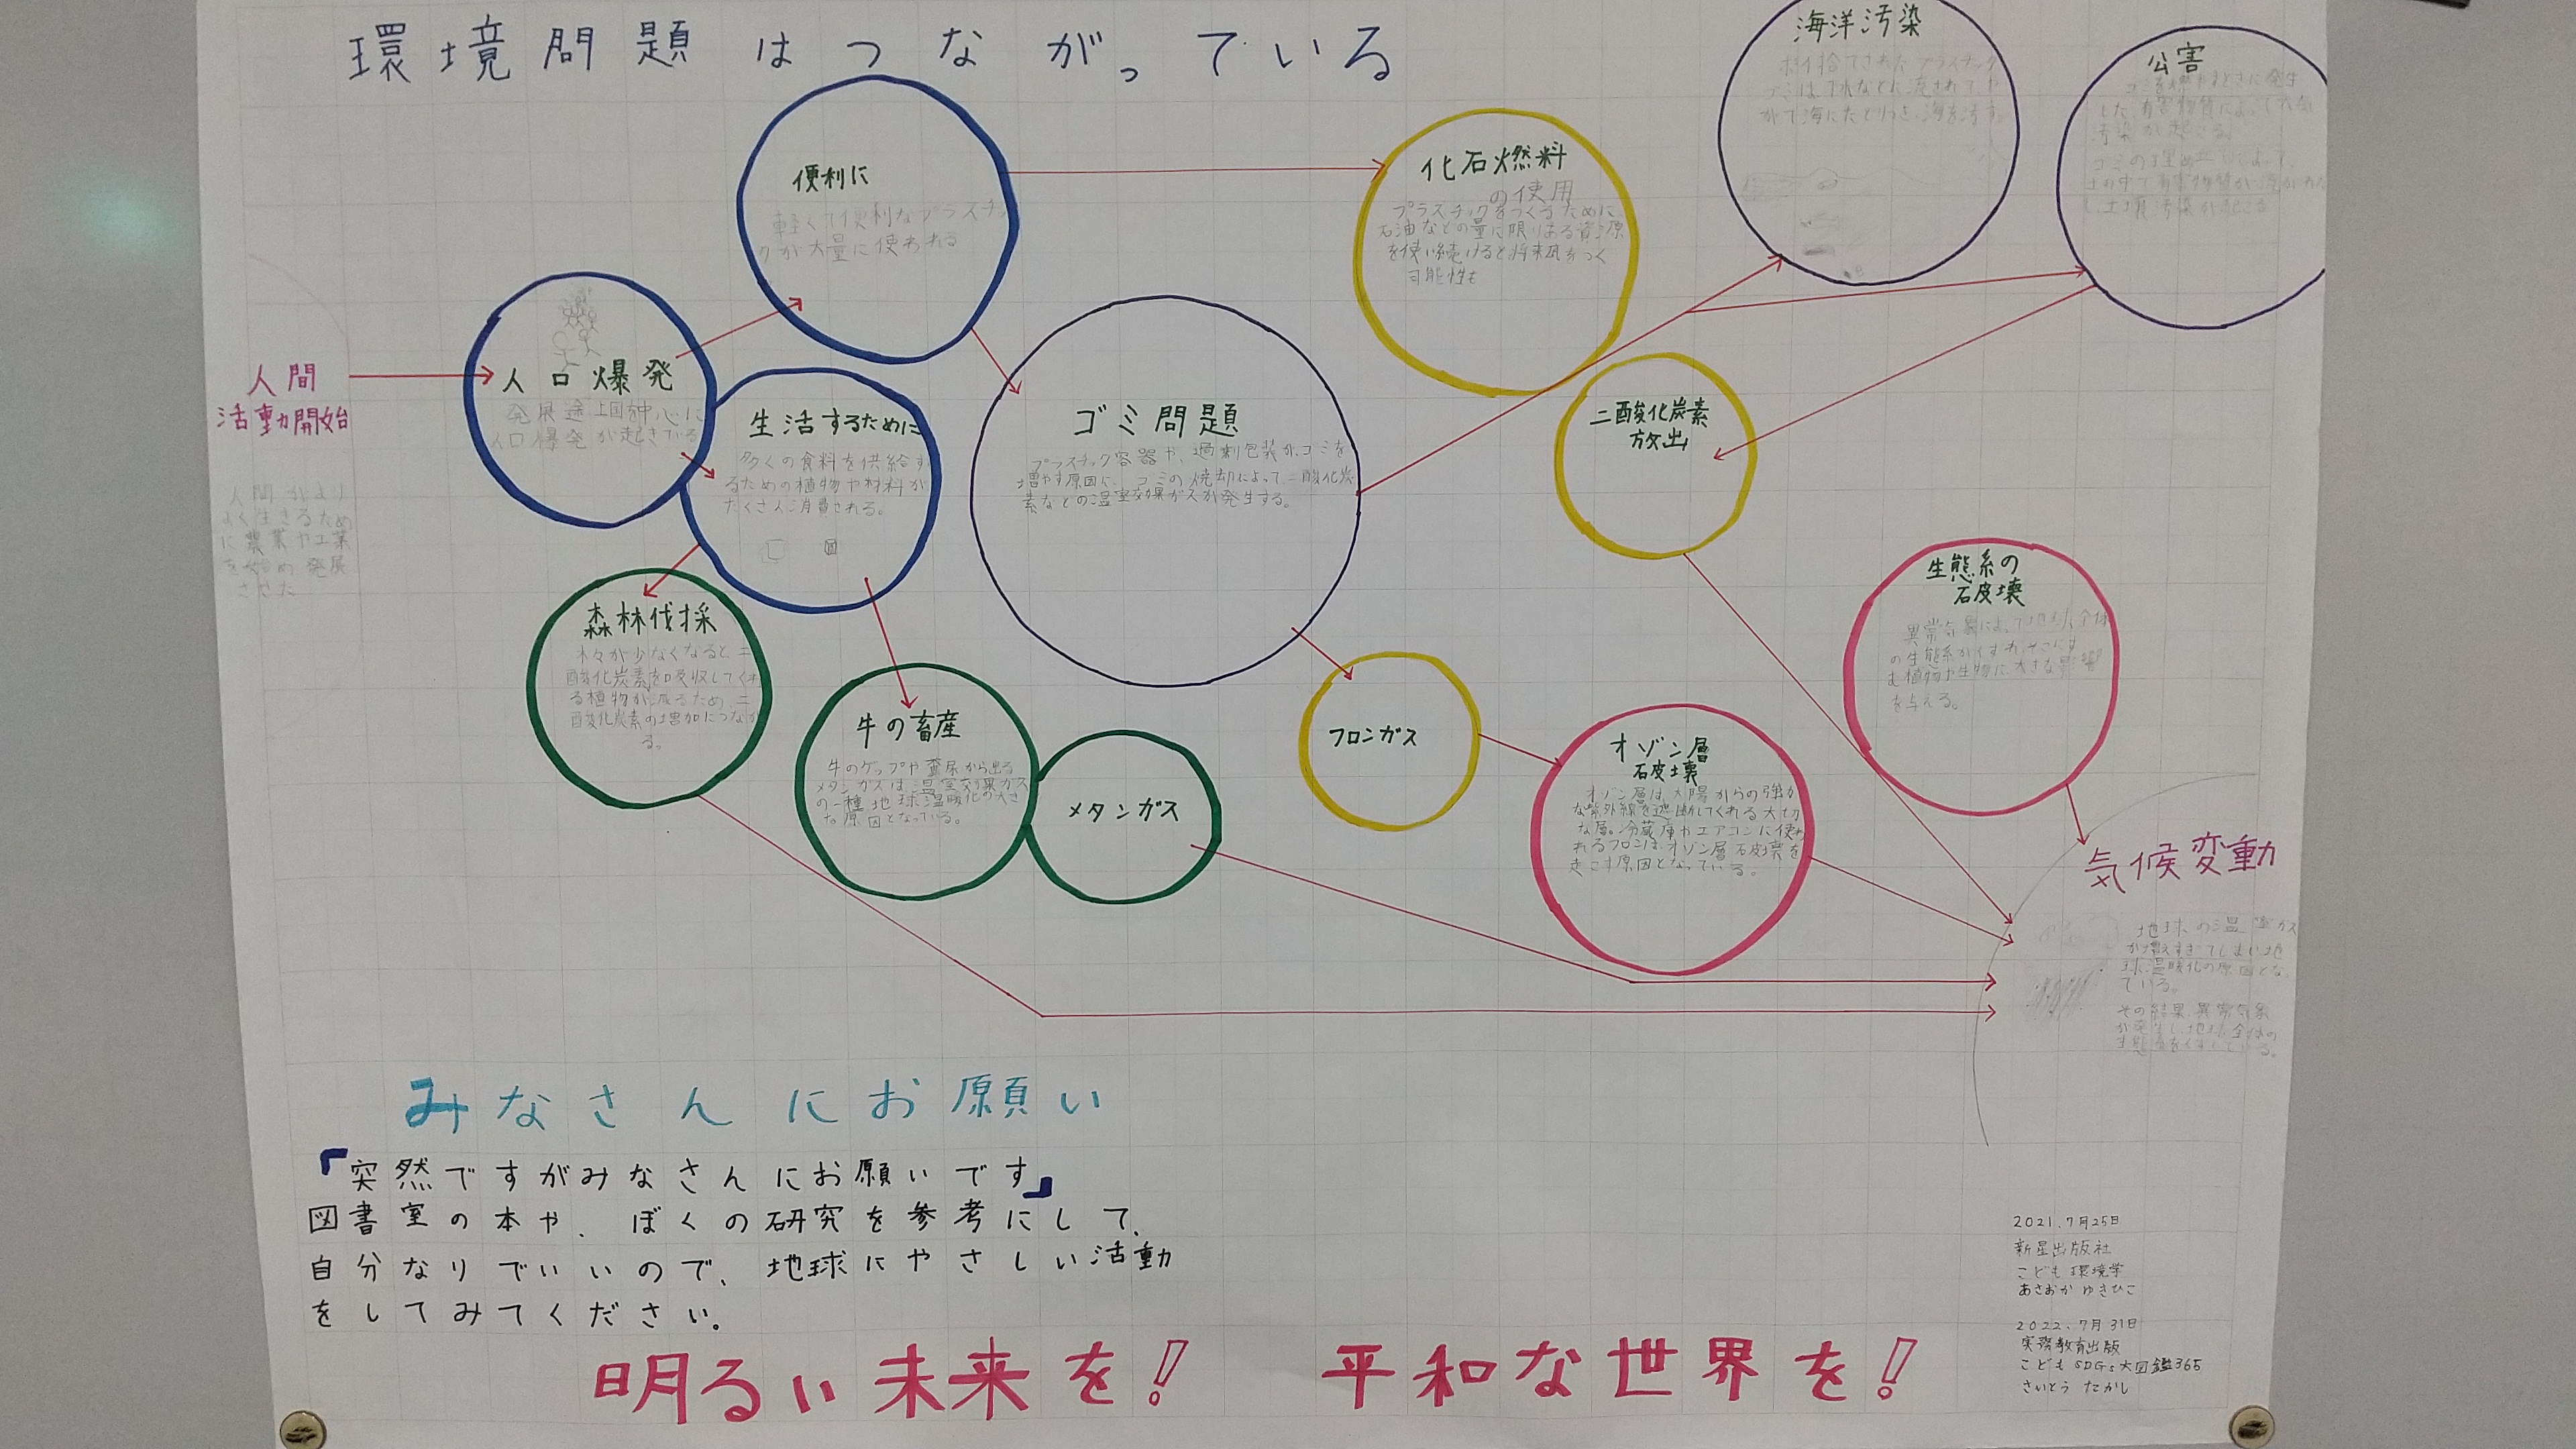 環境問題はつながっている
海洋汚染
ポイ捨てされたプラスチック
ゴミは、川などに流されてや
がて海にたどりつき、海を汚す。
公害
ゴミを燃やすときに発生
した有害物質によって大気
汚染が起きる。
ゴミの埋め立てによって、
土の中で有害物質が
土壌汚染が起こる
便利に
軽くて便利なプラスチッ
クが大量に使われる
化石燃料
の使用
プラスチックをつくるために
石油などの量に限りある資源
を使い続けると将来底をつく
可能性も
人間
活動開始
人間がより
よく生きるため
に農業や工業
を始め発展
させた
人口爆発
発展途上国を中心に
人口爆発が起きている
生活するために
多くの食料を供給す
るための植物や材料が
たくさん消費される。
ゴミ問題
プラスチック容器や、過剰包装がゴミを
増やす原因に。ゴミの焼却によって二酸化炭
素などの温室効果ガスが発生する。
二酸化炭素
放出
生態系の
破壊
異常気象によって地球全体
の生態系がくずれ、そこにす
む植物や生物に大きな影響
を与える。
森林伐採
木々が少なくなると、二
酸化炭素を吸収してくれ
る植物が減るため、二
酸化炭素の増加につなが
る。
牛の畜産
牛のゲップや糞尿から出る
メタンガスは、温室効果ガス
の一種地球温暖化の大き
な原因となっている。
メタンガス
フロンガス
オゾン層
破壊
オゾン層は、太陽からの強力
な紫外線を遮断してくれる大切
な層。冷蔵庫やエアコンに使わ
れるフロンは、オゾン層破壊を
起こす原因となっている。
気候変動
地球の温室ガス
が増えすぎてしまい地
球温暖化の原因とな
ている。
その結果異常気象
が発生し地球全体の
生態系をくずしている。
みなさんにお願い
『突然ですがみなさんにお願いです』
図書室の本や、ぼくの研究を参考にして、
自分なりでいいので、地球にやさしい活動
をしてみてください。
明るい未来を! 平和な世界を!
2021.7月25日
新星出版社
こども環境学
あさおかゆきひこ
2022.7月31日
実務教育出版
こどもSDGs大図鑑365
さいとうたかし